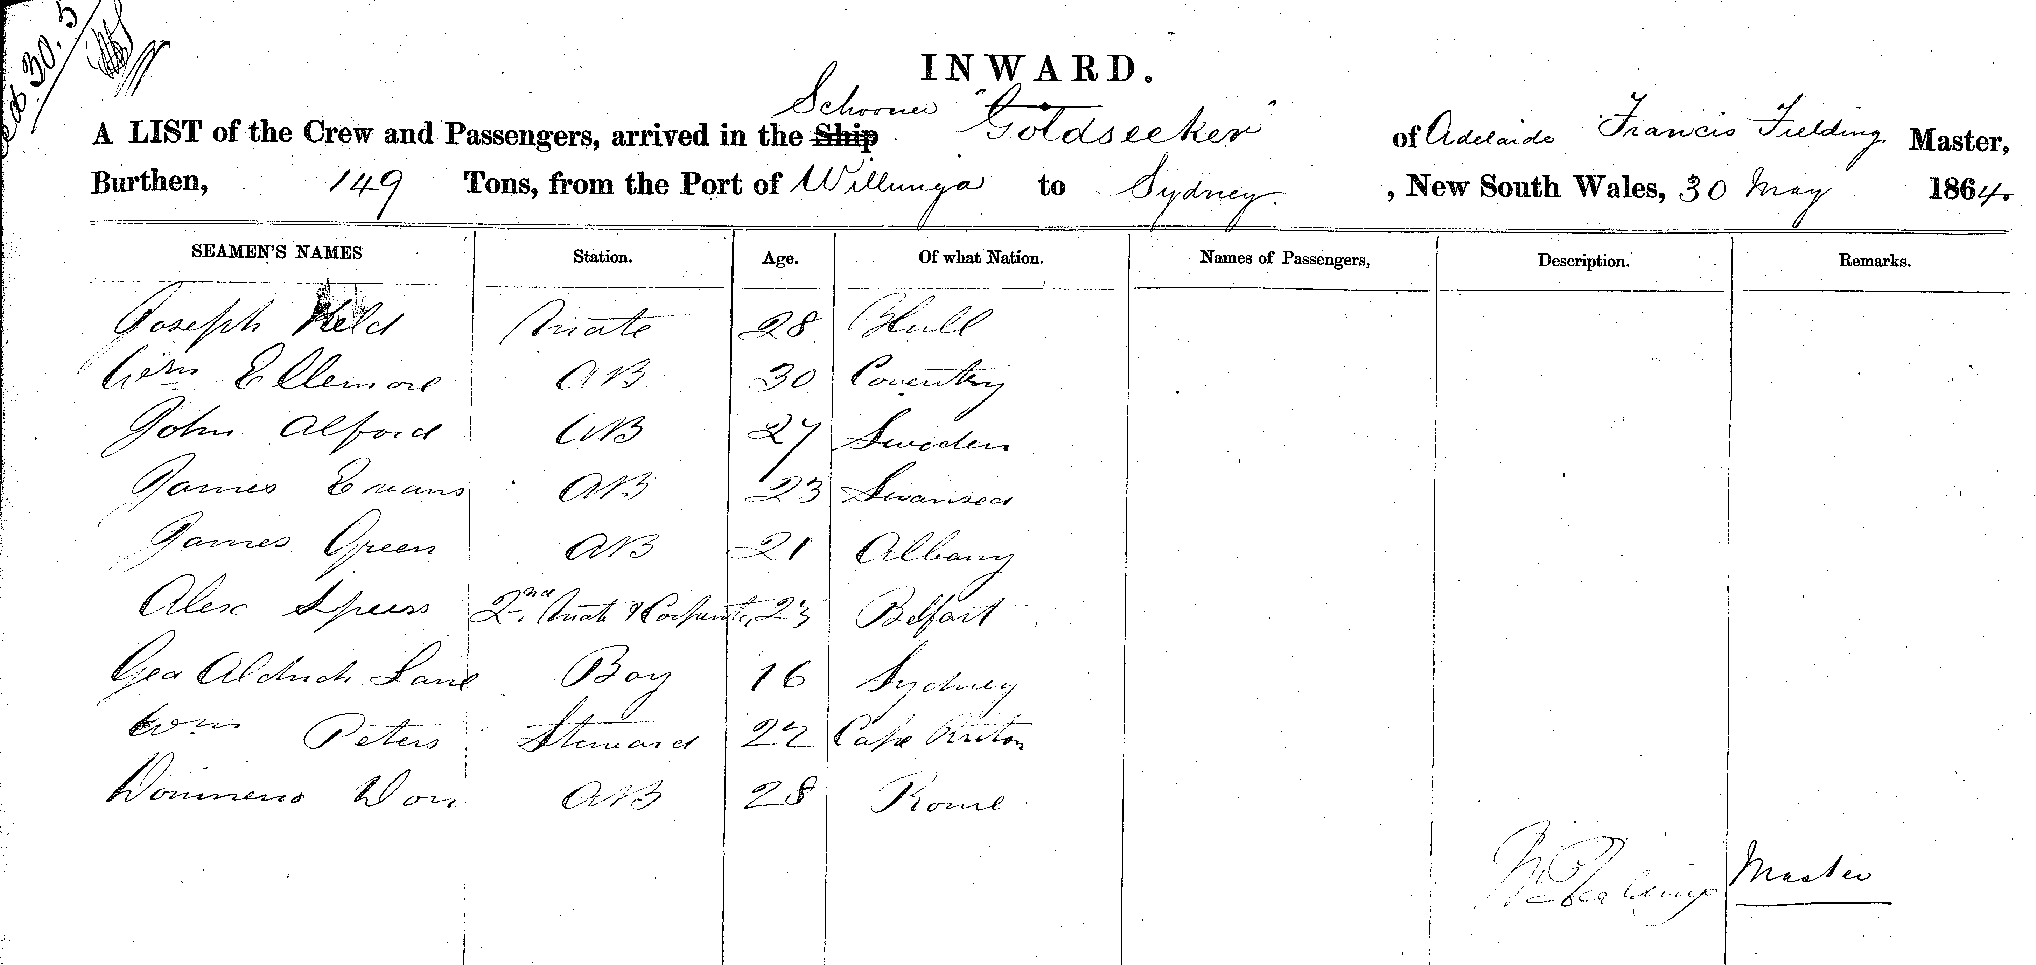 30. 5
INWARD.
Schooner "Goldseeker"
A LIST of the Crew and Passengers, arrived in the Ship of Adelaide Francis Fielding Master,
Burthen, 149 Tons, from the Port of Willunga to Sydney , New South Wales, 30 May 1864.
SEAMEN'S NAMES Station. Age. Of what Nation. Names of Passengers, Description. Remarks.
Joseph Mate 28 Hull
Wm Ellemore AB 30 Coventry
John Alford AB 27 Sweden
James Evans AB 23 Swansea
James Green AB 21 Albany
Alex Speers 2nd Mate & Carpenter 23 Belfast
Geo Aldrich Lane Boy 16 Sydney
Wm Peters Steward 22 Cape Briton
AB 28 Rome
Master